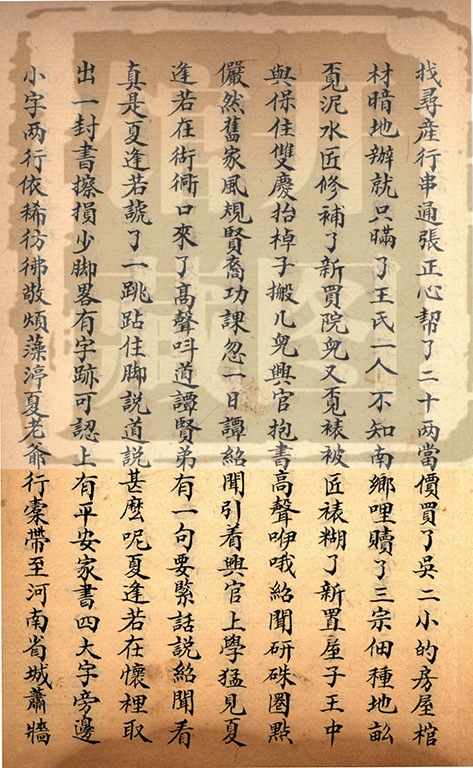 找尋産行串通張正心帮了二十两當價買了吳二小的房屋棺
材暗地辦就只瞞了王氏一人不知南鄉哩贖了三宗佃種地畝
覔泥水匠修補了新買院兒又覔裱被匠裱糊了新置屋子王中
與保住雙慶抬棹子搬几兒興官抱書高聲咿哦紹聞研硃圏點
儼然舊家風規賢裔功課忽一日譚紹聞引着興官上學猛見夏
逢若在衚衕口來了髙聲呌道譚賢弟有一句要緊話說紹聞看
真是夏逢若諕了一跳跕住脚說道說甚麽呢夏逢若在懷裡取
出一封書擦損少脚畧有字跡可認上有平安家書四大字旁邊
小字两行依稀彷彿敬煩藻渟夏老爺行槖帶至河南省城蕭牆